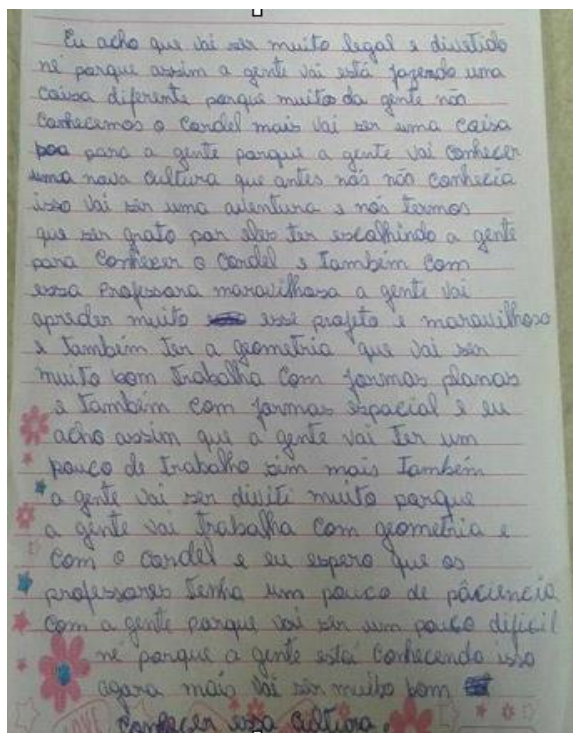 Eu acho que vai ser muito legal e divetido
né porque assim a gente vai está fazendo uma
coisa diferente porque muitos da gente não
conhecemos o cordel mais vai ser uma coisa
boa para a gente porque a gente vai conhecer
uma nova cultura que antes nós não conhecia
isso vai ser uma aventura e nós termos
que ser grato por eles ter escolhindo a gente
para conhecer o cordel e também com
essa professora maravilhosa a gente vai
apreder muito esse projeto e maravilhoso
e também ter a geometria que vai ser
muito bom trabalha com formas planas
e também com formas espacial e eu
acho assim que a gente vai ter um
pouco de trabalho sim mais também
a gente vai ser diviti muito porque
a gente vai trabalha com geometria e
com o cordel e eu espero que os
professores tenha um pouco de pâciencia
com a gente porque vai ser um pouco dificil
né porque a gente está conhecendo isso
agora mais vai ser muito bom
conhecer essa cultura.
LOVE